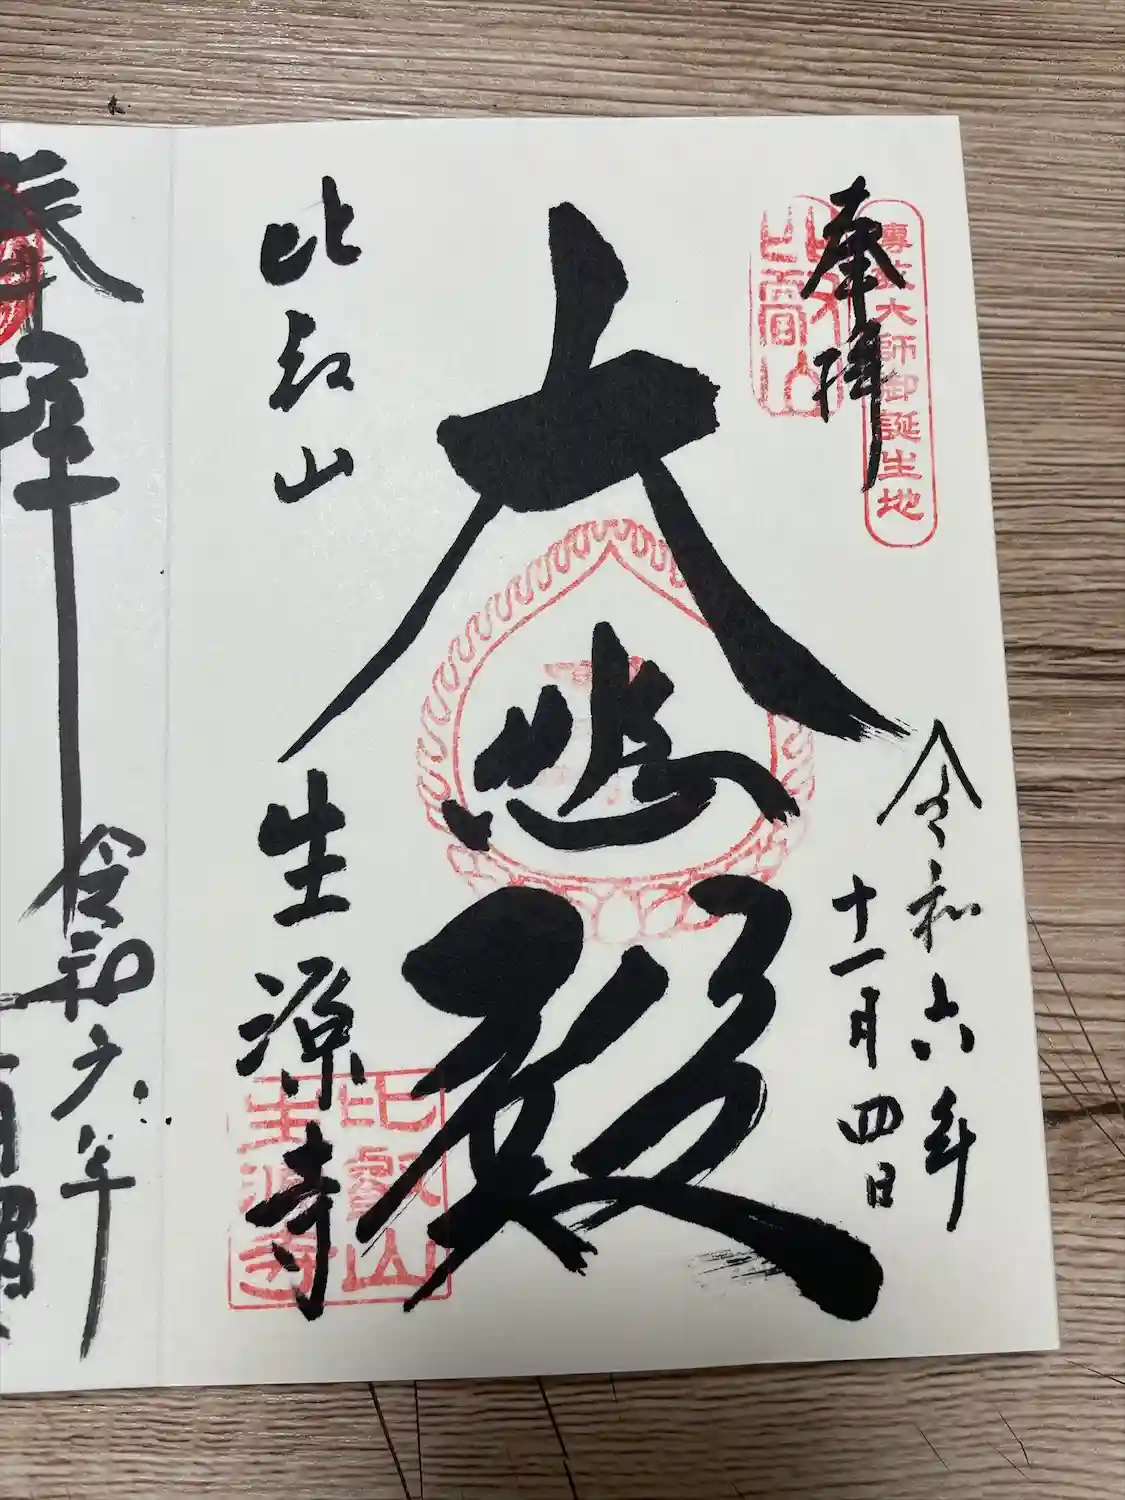 奉拝
傳教大師御誕生地
比叡山
令和六年
十一月四日
大悲殿
比叡山
生源寺
比叡山
生源寺
令和六年